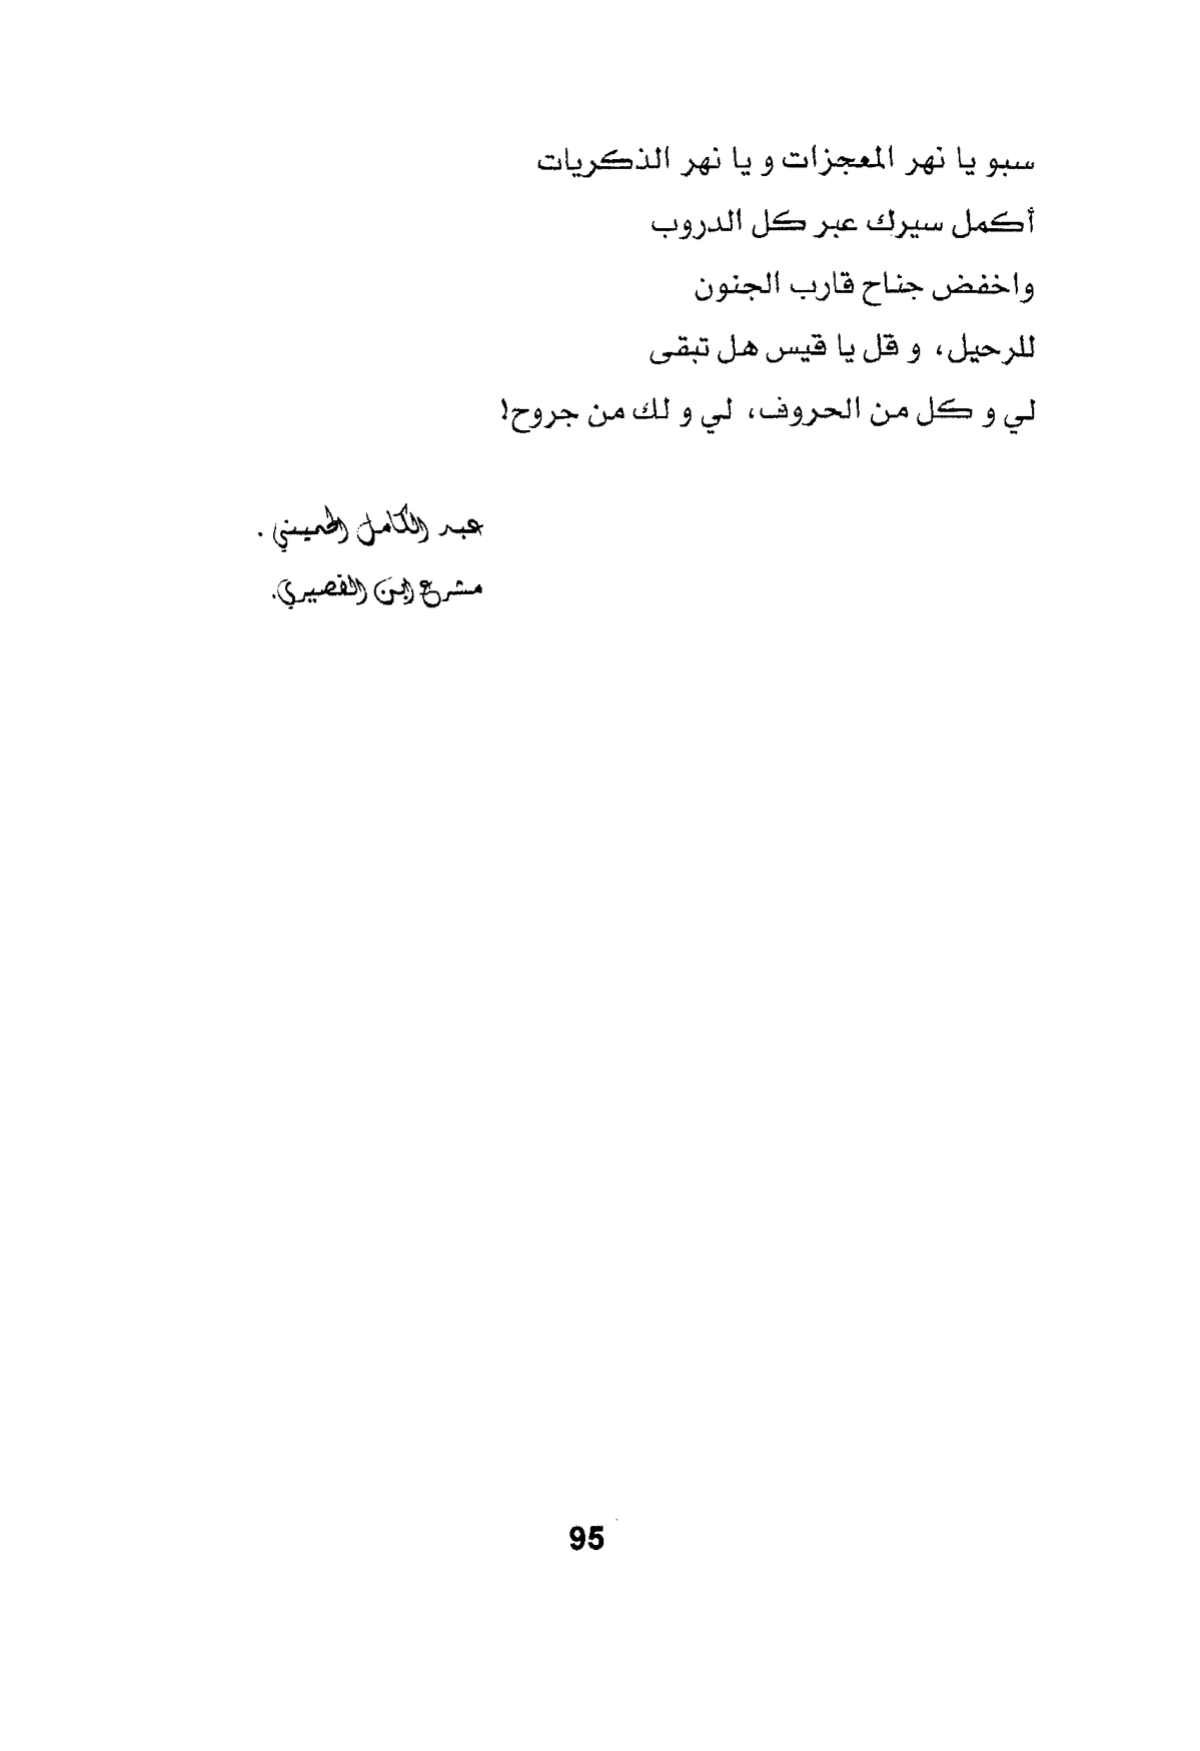 سبو يا نهر المعجزات و يا نهر الذكريات
أكمل سيرك عبر كل الدروب
واخفض جناح قارب الجنون
للرحيل، و قل يا قيس هل تبقى
لي و كل من الحروف، لي و لك من جروح!
عبد الكامل الخميني .
مشرع ابن القصيري.
95